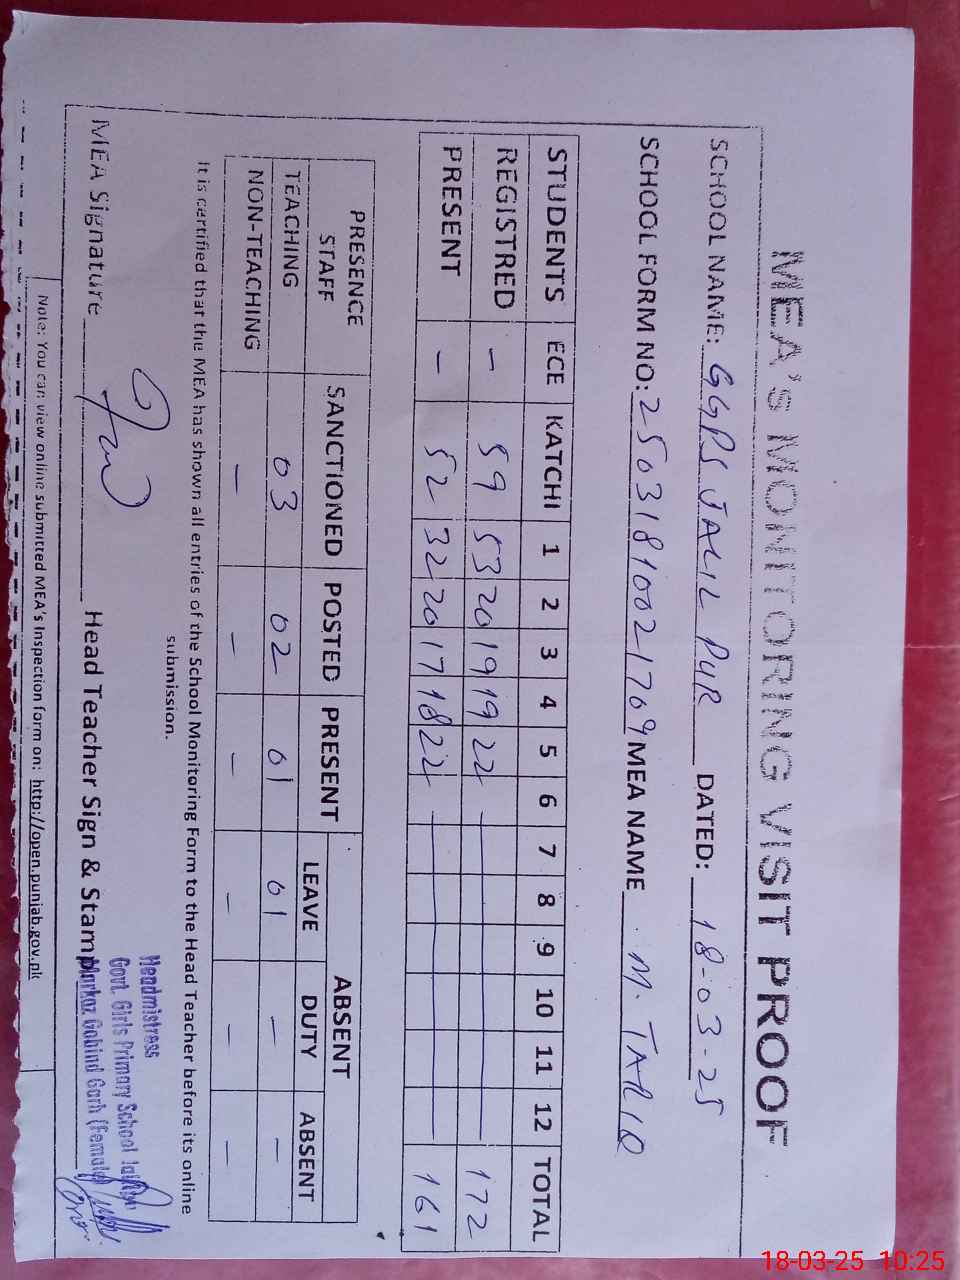 MEA'S MONITORING VISIT PROOF
SCHOOL NAME: GGPS JALIL PUR DATED: 18-03-25
SCHOOL FORM NO: 25031810021709 MEA NAME M. TARIQ
STUDENTS ECE KATCHI 1 2 3 4 5 6 7 8 9 10 11 12 TOTAL
REGISTRED – 59 33 20 19 19 22 — 172
PRESENT – 52 32 20 17 18 22 — 161
PRESENCE STAFF SANCTIONED POSTED PRESENT ABSENT
LEAVE DUTY ABSENT
TEACHING 03 02 01 01 – –
NON-TEACHING – – – – – –
It is certified that the MEA has shown all entries of the School Monitoring Form to the Head Teacher before its online
submission.
Headmistress
Govt. Girls Primary School
Markaz Gobind Garh (Female)
MEA Signature Head Teacher Sign & Stamp
Note: You can view online submitted MEA's Inspection form on: http://open.punjab.gov.pk
18-03-25 10:25